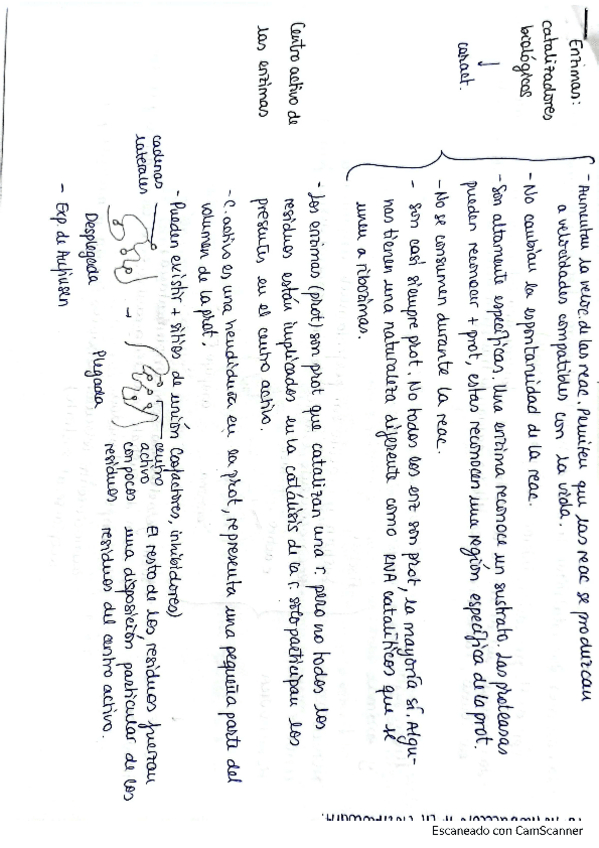 Enzimas:
catalizadores
biológicos
↓
caract.
- Aumentan la veloc. d las reac. Permiten que las reac se produzcan
a velocidades compatibles con la vida.
- No cambian la espontaneidad de la reac.
- Son altamente específicas. Una enzima reconoce un sustrato. Las proteasas
pueden reconocer + prot, estas reconocen una región específica de la prot.
- No se consumen durante la reac.
- Son casi siempre prot. No todas las enz son prot, la mayoría sí. Algu-
nas tienen una naturaleza diferente como RNA catalíticos que se
unen a ribozimas.
Centro activo de
las enzimas
- Las enzimas (prot) son prot que catalizan una r. pero no todos los
residuos están implicados en la catálisis de la r. solo participan los
presentes en el centro activo.
- C. activo es una hendidura en la prot, representa una pequeña parte del
volumen de la prot.
- Pueden existir + sitios de unión (cofactores, inhibidores)
cadenas
laterales
Desplegada
→
Plegada
centro
activo
con pocos
residuos
El resto de los residuos fuerzan
una disposición particular de los
residuos del centro activo.
- Exp de Anfinsen
Escaneado con CamScanner